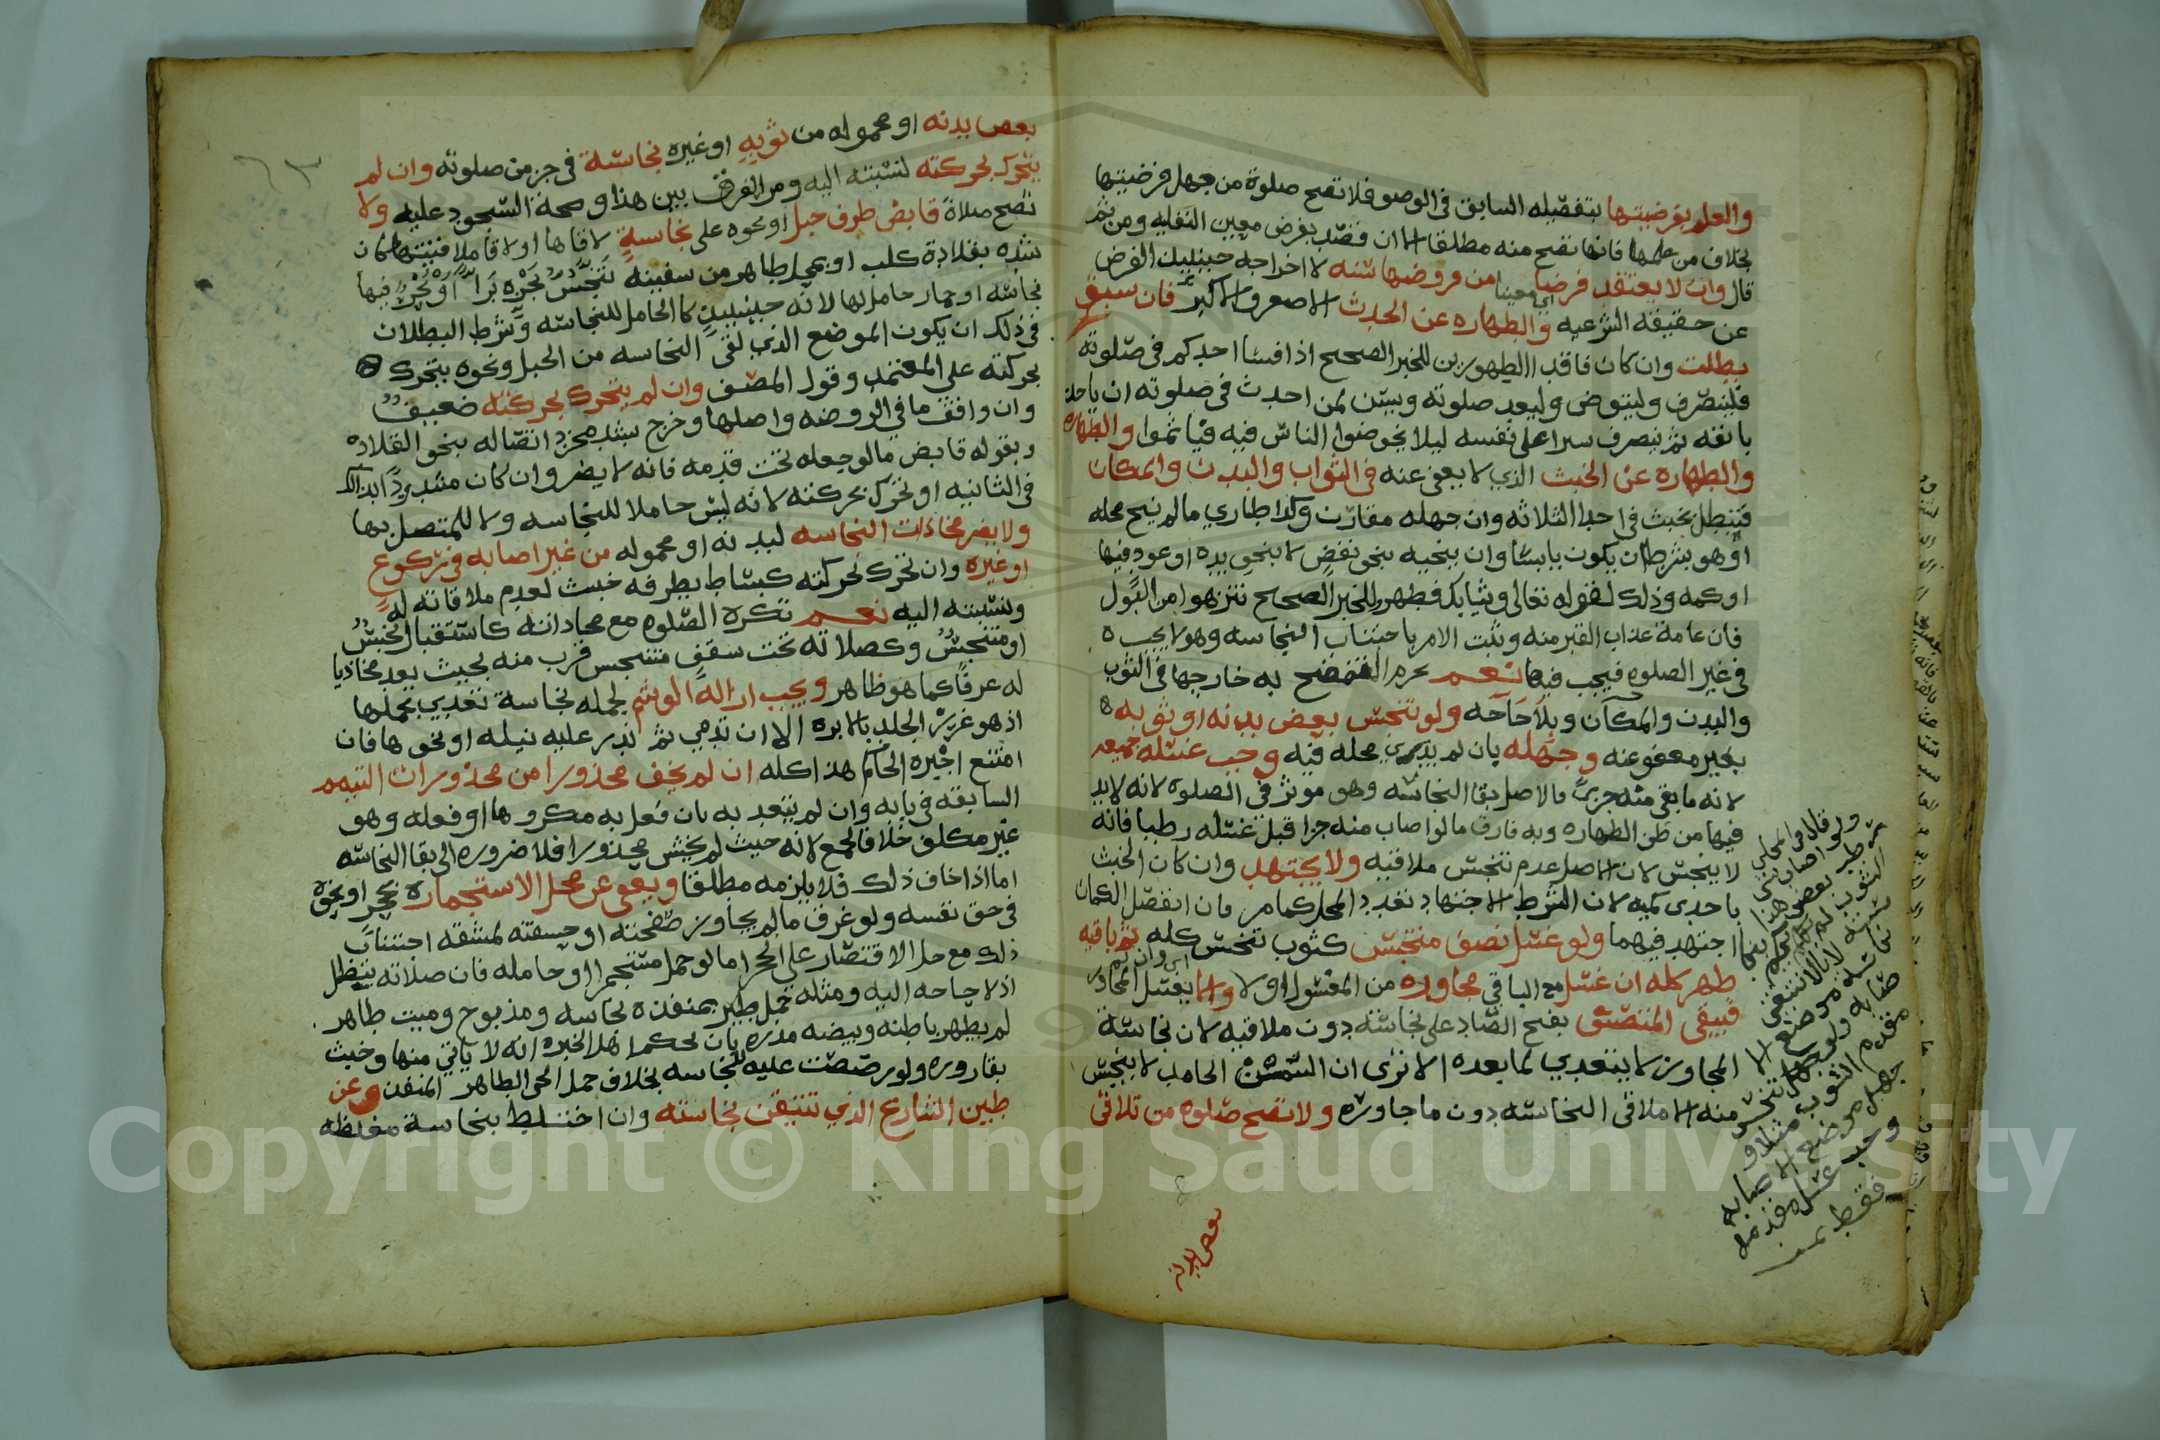 والعلم بفرضيتها بتفصيله السابق في الوضو فلا تصح صلوة من جهل فرضيتها
بخلاف من علمها فانها تصح منه مطلقا الا ان قصد بفرض معين النفليه ومن ثم
قال وان لا يعتقد فرضا معينا من فروضها سنه لاخراجه حينييذ الفرض
عن حقيقته الشرعيه والطهاره عن الحدث الاصغر والاكبر فان سبق
بطلت وان كان فاقد الطهورين للخبر الصحيح اذا فسا احدكم في صلوته
فلينصرف وليتوضى وليعد صلوته ويسن لمن احدث في صلوته ان ياخذ
بانفه ثم ينصرف سترا على نفسه ليلا يخوضوا الناس فيه فياثموا والطهاره
والطهاره عن الخبث الذي لا يعفى عنه في الثواب والبدن والمكان
فتبطل بخبث في احد الثلاثه وان جهله مقارن وكذا طاري ما لم ينح محله
او هو بشرط ان يكون يابسا وان ينحيه بنحو نفض لا بنحو يده او عود فيها
او كمه وذلك لقوله تعالى وثيابك فطهر وللخبر الصحيح تنزهوا من البول
فان عامة عذاب القبر منه وثبت الامر باجتناب النجاسه وهو لا يجب
في غير الصلوه فيجب فيها نعم يحرم التضمخ به خارجها في الثوب
والبدن والمكان وبلا حاجه ولو تنجس بعض بدنه او ثوبه
بغير معفو عنه وجهله بان لم يدري محله فيه وجب غسله جميعه
لانه ما بقي منه جزء فالاصل بقا النجاسه وهو موثر في الصلوه لانه لا بد
فيها من ظن الطهاره وبه فارق ما لو اصاب منه جزا قبل غسله رطبا فانه
لا ينجس لان الاصل عدم تنجس ملاقيه ولا يجتهد وان كان الخبث
باحدى كميه لان الشرط الاجتهاد تعدد المحل كما مر فان انفصل الكمان
اجتهد فيهما ولو غسل نصف متنجس كثوب تنجس كله ثم باقيه
طهر كله ان غسل مع الباقي مجاوره من المغسول اولا والا يغسل المجاور
فيبقى المنتصف بفتح الصاد على نجاسته دون ملاقيه لان نجاسة
المجاور لا يتعدي لما بعده الا ترى ان السمن الجامد لا ينجس
منه الا ملاقي النجاسه دون ما جاوره ولا تصح صلوه من تلاقي
بعض بدنه
بعض بدنه او محموله من ثوبه او غيره نجاسة في جزء من صلوته وان لم
يتحرك بحركته لنسبته اليه ومر الفرق بين هذا وصحة السجود عليه ولا
تصح صلاة قابض طرف حبل او نحوه على نجاسة لاقاها او لاقا ملاقيها كان
شده بقلادة كلب او بمحل طاهر من سفينه تنجس بجره برا او بحرا فيها
نجاسه او حمار حامل لها لانه حينييذ كالحامل للنجاسه وشرط البطلان
في ذلك ان يكون الموضع الذي لقي النجاسه من الحبل ونحوه يتحرك
بحركته على المعتمد وقول المصنف وان لم يتحرك بحركته ضعيف
وان وافق ما في الروضه واصلها وخرج بشد مجرد اتصاله بنحو القلاده
وبقوله قابض ما لو جعله تحت قدمه فانه لا يضر وان كان مشدودا بذلك
في الثانيه او تحرك بحركته لانه ليس حاملا للنجاسه ولا للمتصل بها
ولا يضر محاذات النجاسه لبدنه او محموله من غير اصابه في ركوع
او غيره وان تحرك بحركته كبساط بطرفه خبث لعدم ملاقاته له
ونسبته اليه نعم تكره الصلوه مع محاذاته كاستقبال نجس
او متنجس وكصلاته تحت سقف متنجس قرب منه بحيث يعد محاذيا
له عرفا كما هو ظاهر ويجب ازالة الوشم لحمله نجاسة تعدي بحملها
اذ هو غرز الجلد بالابره الا ان تدمي ثم يذر عليه نيله او نحوها فان
امتنع اجبره الحاكم هذا كله ان لم يخف محذورا من محذورات التيمم
السابقه في بابه وان لم يتعد به بان فعل به مكروها او فعله وهو
غير مكلف خلافا لجمع لانه حيث لم يخش محذورا فلا ضروره الى بقا النجاسه
اما اذا خاف ذلك فلا يلزمه مطلقا ويعفى عن محل الاستجماره بحجر او نحوه
في حق نفسه ولو عرق ما لم يجاوز صفحته او حشفته لمشقة اجتناب
ذلك مع حل الاقتصار على الحجر اما لو حمل مستجمرا او حامله فان صلاته تبطل
اذ لا حاجه اليه ومثله حمل طير بمنفذه نجاسه ومذبوح وميت طاهر
لم يطهر باطنه وبيضه مذره بان يحكم اهل الخبره انه لا ياتي منها وخبث
بقاروره ولو رصصت عليه للنجاسه بخلاف حمل الحي الطاهر المنفذ وعن
طين الشارع الذي تتيقن نجاسته وان اختلط بنجاسة مغلظه
Copyright © King Saud University